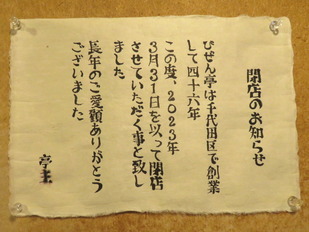 閉店のお知らせ
びぜん亭は千代田区で創業
して四十六年
この度、2023年
3月31日を以って閉店
させていただく事と致し
ました。
長年のご愛顧ありがとう
ございました。
亭主